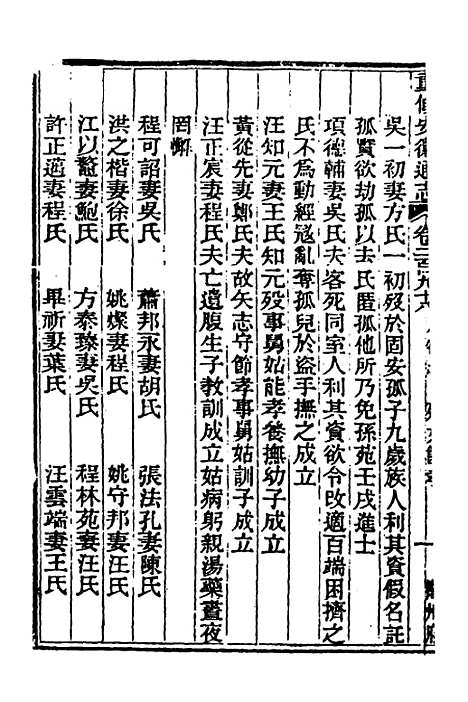 重修安徽通志 卷二百
吳一初妻方氏一初歿於固安孤子九歲族人利其資假名託
孤實欲劫孤以去氏匿孤他所乃免孫苑壬戌進士
項德輔妻吳氏夫客死同室人利其資欲令改適百端困擠之
氏不爲動經寇亂奪孤兒於盜手撫之成立
汪知元妻王氏知元歿事舅姑能孝養撫幼子成立
黃從先妻鄭氏夫故矢志守節孝事舅姑訓子成立
汪正宸妻程氏夫亡遺腹生子教訓成立姑病躬親湯藥晝夜
罔懈
程可詔妻吳氏 蕭邦永妻胡氏 張法孔妻陳氏
洪之楷妻徐氏 姚燦妻程氏 姚守邦妻汪氏
江以鰲妻鮑氏 方泰臻妻吳氏 程林苑妻汪氏
許正適妻程氏 畢祈妻葉氏 汪雲端妻王氏